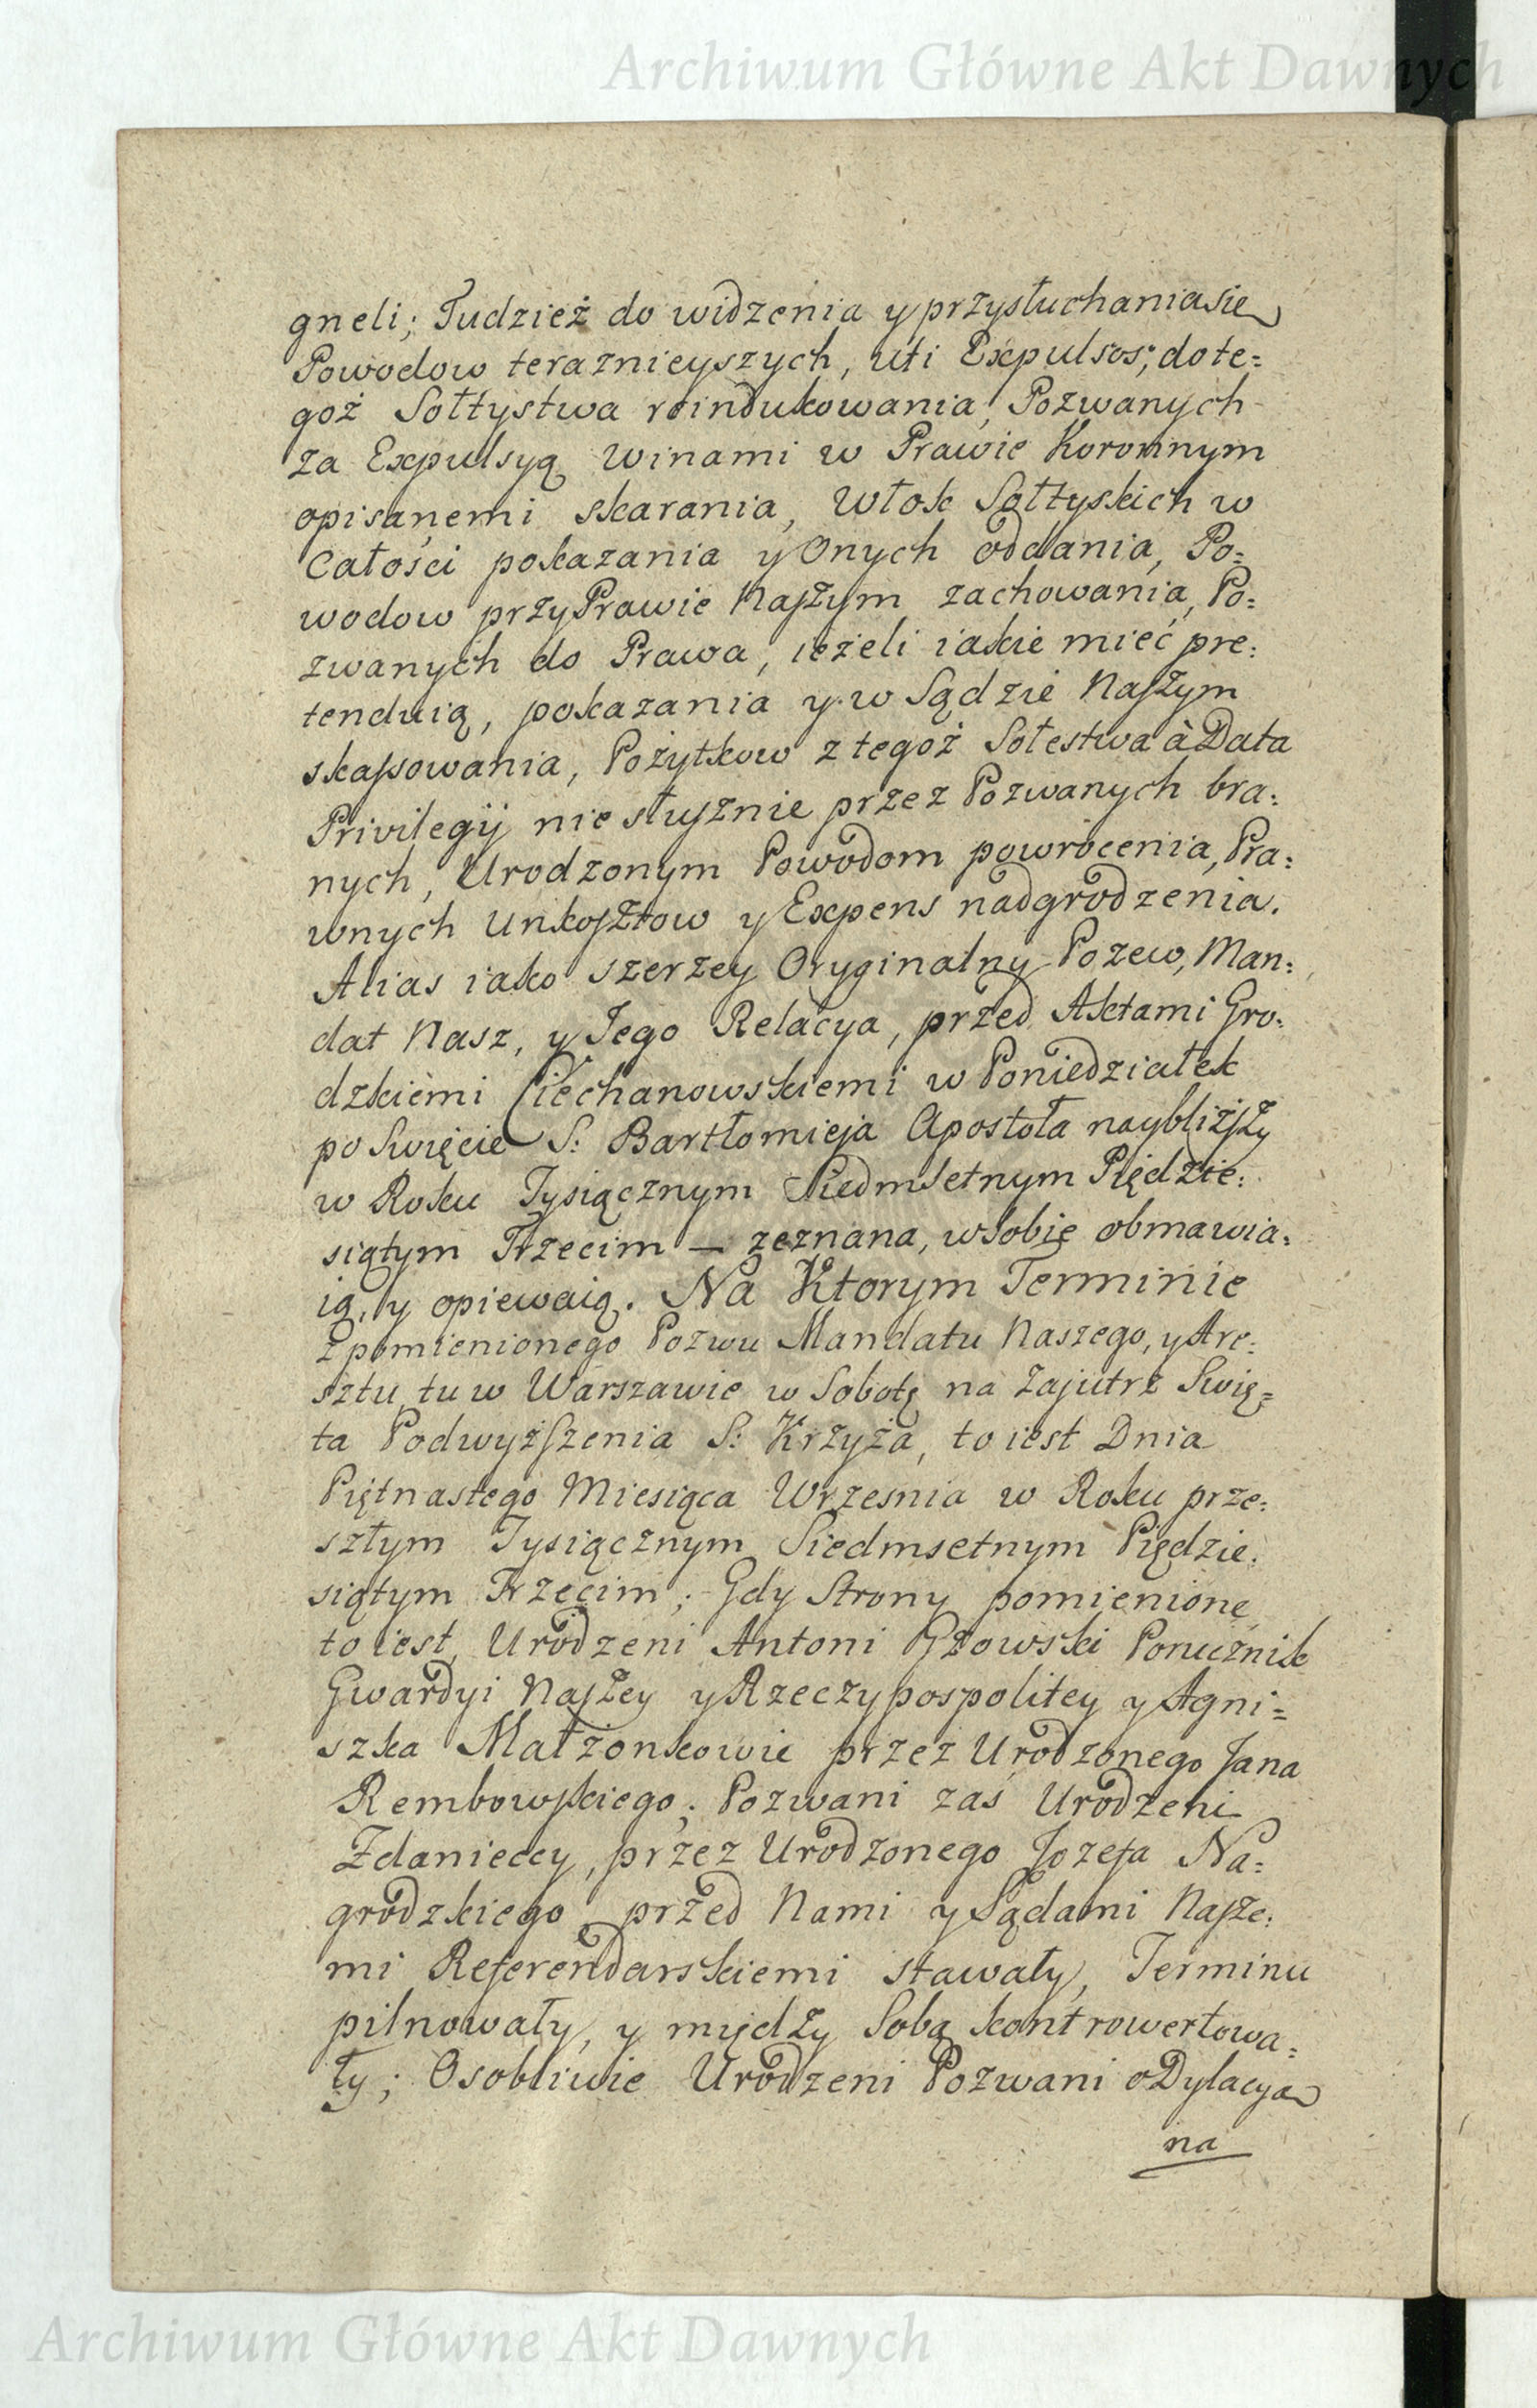 Archiwum Główne Akt Dawnych
gneli; Tudzież do widzenia y przysłuchania się
Powodow teraznieyszych, uti Expulsos; do te=
goż Sołtystwa reindukowania, Pozwanych
za Expulsyą winami w Prawie Koronnym
opisanemi skarania, Włok Sołtyskich w
Całości pokazania y Onych oddania, Po=
wodow przy Prawie Naszym zachowania, Po=
zwanych do Prawa, ieżeli iakie mieć pre=
tenduią, pokazania y w Sądzie Naszym
skassowania, Pożytkow z tegoż Sołestwa à Data
Privilegij niesłusznie przez Pozwanych bra=
nych, Urodzonym Powodom powrócenia, Pra=
wnych Unkosztow y Expens nadgrodzenia.
Alias iako szerzey Oryginalny Pozew, Man=
dat Nasz, y Jego Relacya, przed Aktami Gro=
dzkiemi Ciechanowskiemi w Poniedziałek
po Swięcie S: Bartłomieja Apostoła naybliższy
w Roku Tysiącznym Siedmsetnym Piędzie=
siątym Trzecim — zeznana, w sobie obmawia=
ią, y opiewaią. Na Ktorym Terminie
z pomienionego Pozwu Mandatu Naszego, y Are=
sztu tu w Warszawie w Sobotę na Zajutrz Swię=
ta Podwyższenia S: Krzyża, to iest Dnia
Piętnastego Miesiąca Wrzesnia w Roku prze=
szłym Tysiącznym Siedmsetnym Piędzie=
siątym Trzecim; Gdy Strony pomienione
to iest, Urodzeni Antoni Ossowski Porucznik
Gwardyi Naszey y Rzeczypospolitey y Agni=
szka Małżonkowie przez Urodzonego Jana
Rembowskiego; Pozwani zaś Urodzeni
Zdanieccy, przez Urodzonego Jozefa Na=
grodzkiego przed Nami y Sądami Nasze=
mi Referendarskiemi stawały, Terminu
pilnowały, y między Sobą kontrowertowa=
ły; Osobliwie Urodzeni Pozwani o Dylacyą
na
Archiwum Główne Akt Dawnych